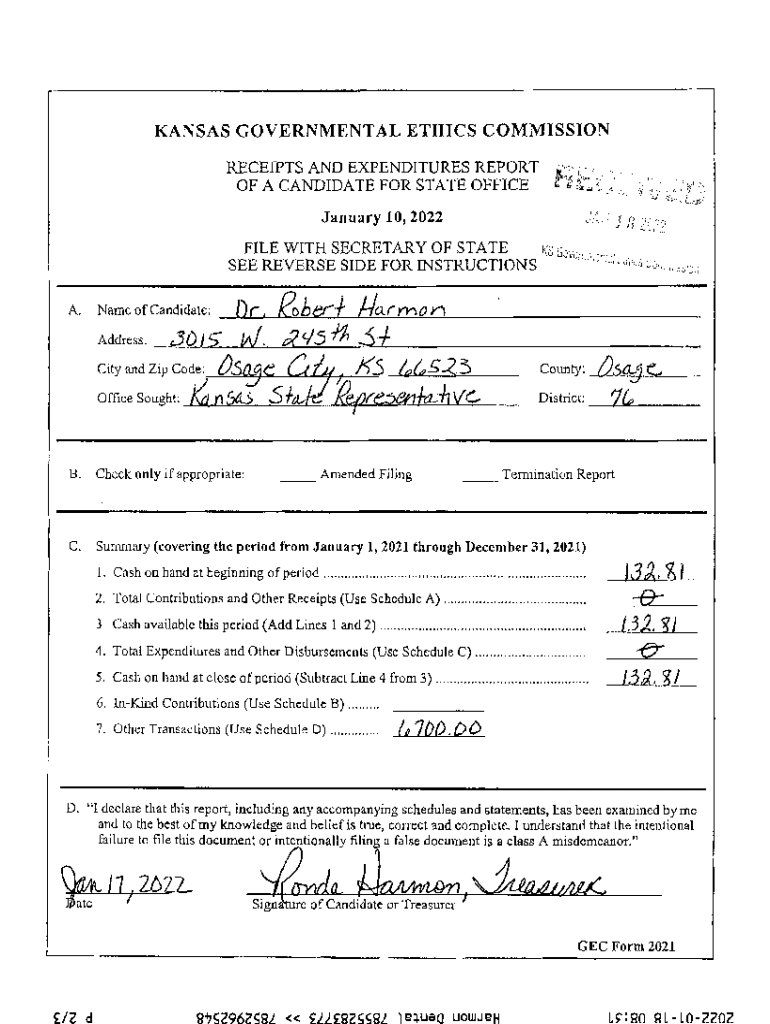 KANSAS GOVERNMENTAL ETHICS COMMISSION
RECEIPTS AND EXPENDITURES REPORT
OF A CANDIDATE FOR STATE OFFICE
RECEIVED
January 10, 2022
JAN 18 2022
FILE WITH SECRETARY OF STATE
SEE REVERSE SIDE FOR INSTRUCTIONS
A. Name of Candidate: Dr. Robert Harmon
Address. 3015 W. 245th St
City and Zip Code: Osage City, KS 66523 County: Osage
Office Sought: Kansas State Representative District: 76
B. Check only if appropriate: Amended Filing Termination Report
C. Summary (covering the period from January 1, 2021 through December 31, 2021)
1. Cash on hand at beginning of period 132.81
2. Total Contributions and Other Receipts (Use Schedule A) 0
3 Cash available this period (Add Lines 1 and 2) 132.81
4. Total Expenditures and Other Disbursements (Use Schedule C) 0
5. Cash on hand at close of period (Subtract Line 4 from 3) 132.81
6. In-Kind Contributions (Use Schedule B)
7. Other Transactions (Use Schedule D) 6,700.00
D. "I declare that this report, including any accompanying schedules and statements, has been examined by me
and to the best of my knowledge and belief is true, correct and complete. I understand that the intentional
failure to file this document or intentionally filing a false document is a class A misdemeanor."
Jan 17, 2022 Ronda Harmon, Treasurer
Date Signature of Candidate or Treasurer
GEC Form 2021
2022-01-18 08:31 Harmon Dental 7855283773 >> 7852962548 P 2/3